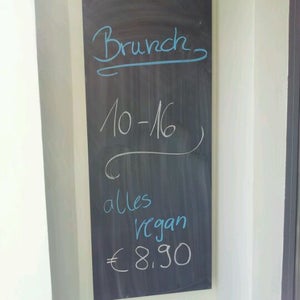 Brunch
10-16
alles
vegan
€ 8,90